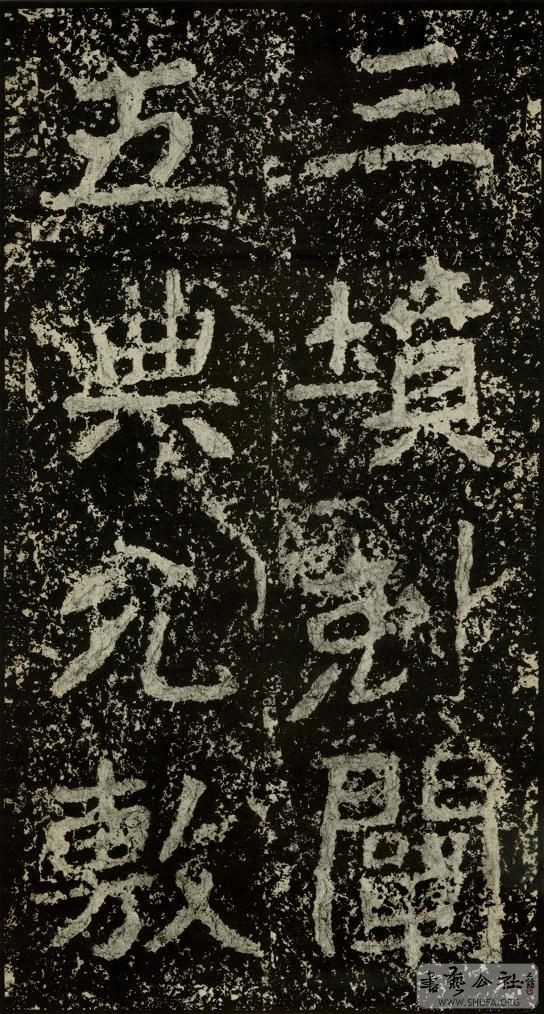 三墳剖闡
五典允敷
書藝公社
WWW.SHUFA.ORG